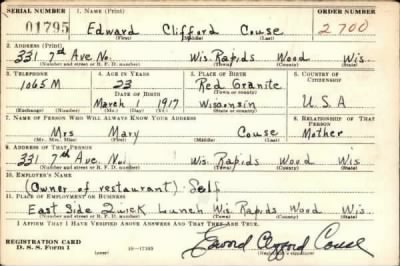 SERIAL NUMBER 1. NAME (Print) ORDER NUMBER
01795 Edward Clifford Couse 2700
(First) (Middle) (Last)
2. ADDRESS (Print)
331 7th Ave No. Wis. Rapids Wood Wis.
(Number and street or R. F. D. number) (Town) (County) (State)
3. TELEPHONE 4. AGE IN YEARS 5. PLACE OF BIRTH 6. COUNTRY OF CITIZENSHIP
1065 M 23 Red Granite
DATE OF BIRTH (Town or county)
March 1 1917 Wisconsin U. S. A
(Exchange) (Number) (Mo.) (Day) (Yr.) (State or country)
7. NAME OF PERSON WHO WILL ALWAYS KNOW YOUR ADDRESS 8. RELATIONSHIP OF THAT PERSON
Mrs Mary Couse Mother
(Mr., Mrs., Miss) (First) (Middle) (Last)
9. ADDRESS OF THAT PERSON
331 7th Ave. No. Wis. Rapids Wood Wis
(Number and street or R. F. D. number) (Town) (County) (State)
10. EMPLOYER'S NAME
(Owner of restaurant) Self
11. PLACE OF EMPLOYMENT OR BUSINESS
East Side Quick Lunch Wis. Rapids Wood Wis.
(Number and street or R. F. D. number) (Town) (County) (State)
I AFFIRM THAT I HAVE VERIFIED ABOVE ANSWERS AND THAT THEY ARE TRUE.
REGISTRATION CARD
D. S. S. FORM 1 (over) 16—17105 Edward Clifford Couse